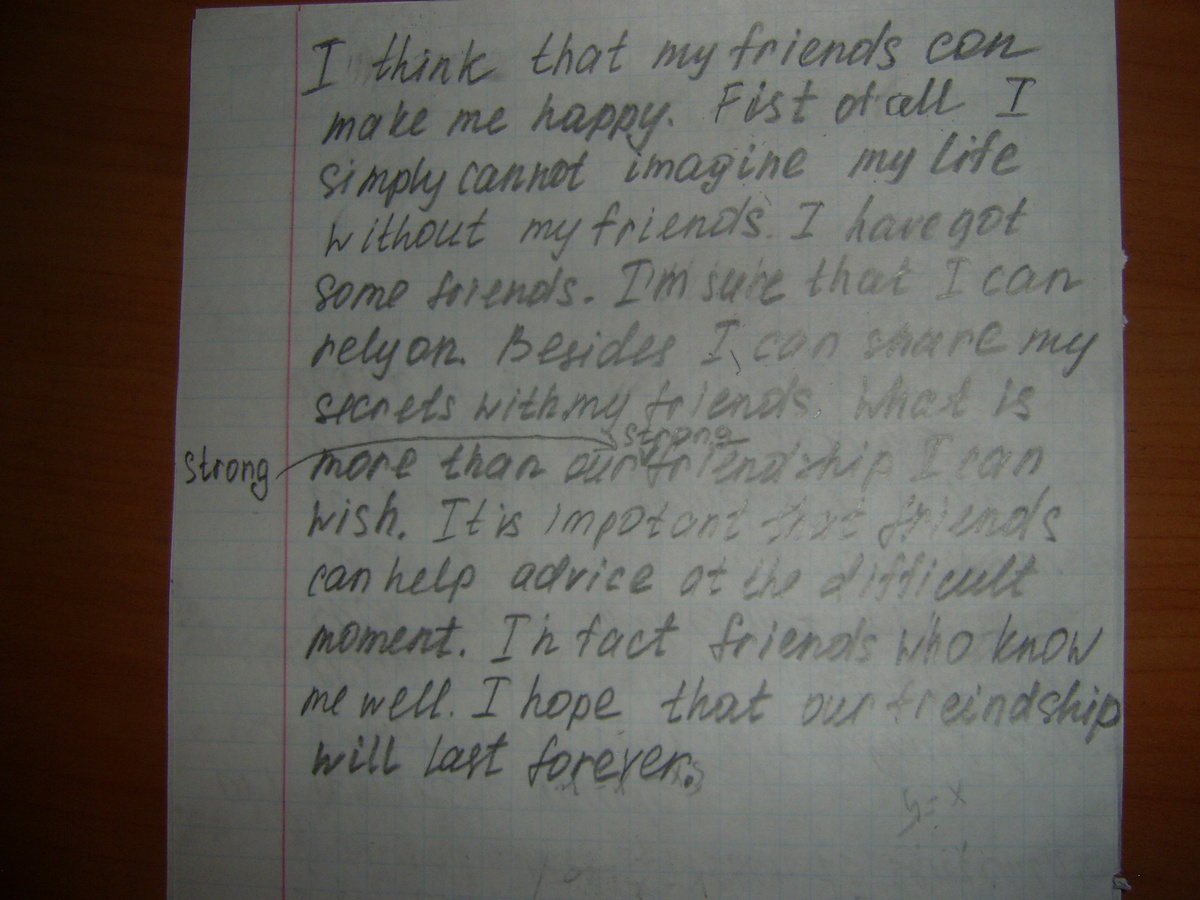 I think that my friends can
make me happy. Fist of all I
simply cannot imagine my life
without my friends. I have got
some friends. I'm sure that I can
rely on. Besides I can share my
secrets with my friends. What is
strong
strong more than our friendship I can
wish. It is impotant that friends
can help advice at the difficult
moment. In fact friends who know
me well. I hope that our freindship
will last forever.
y = x